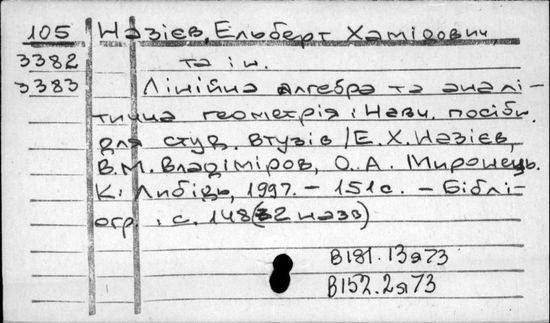 105 Назієв, Ельберт Хамідович
3382 та ін.
3383 Лінійна алгебра та аналі-
тична геометрія: Навч. посібн.
для студ. втузів / Е. Х. Назієв,
В. М. Владіміров, О. А. Миронець.
К.: Либідь, 1997. – 151 с. – Біблі-
огр.: с. 148 (32 назв)
В181.13я73
В152.2я73